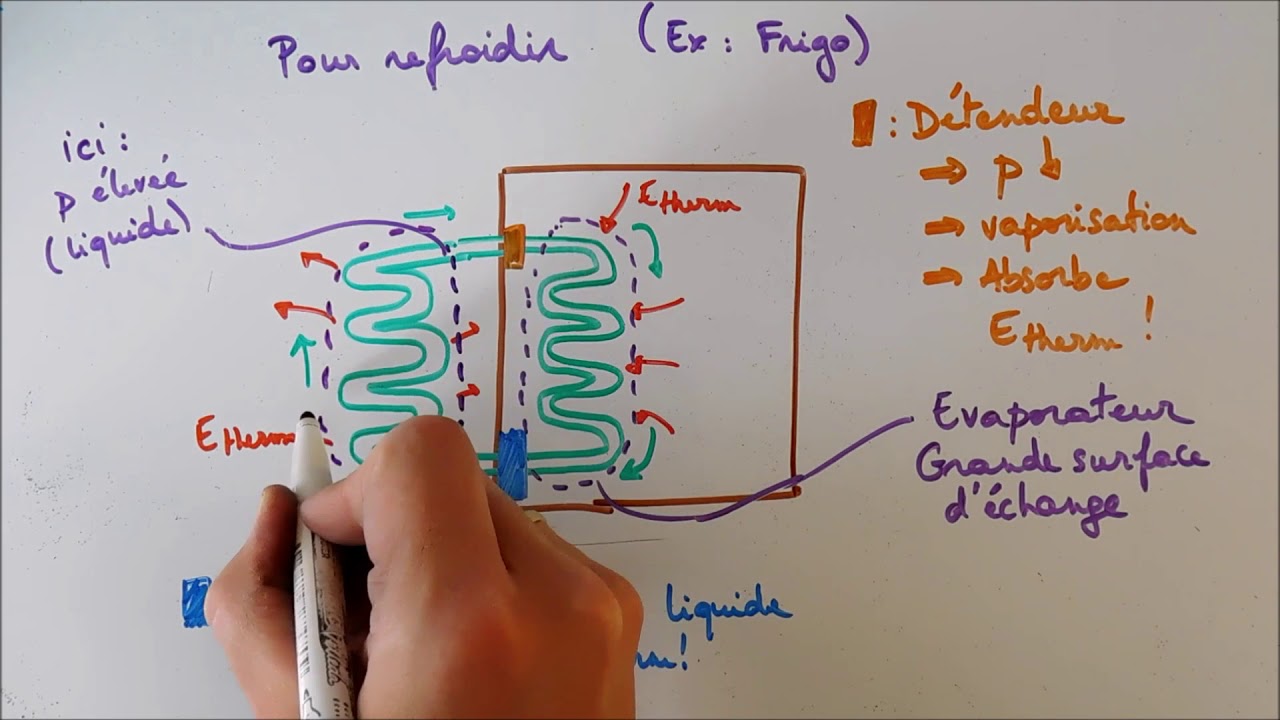 Pour refroidir (Ex : Frigo)
ici :
p élevée
(liquide)
E therm
: Détendeur
→ p ↓
→ vaporisation
→ Absorbe
E therm !
E therm
Evaporateur
Grande surface
d'échange
liquide